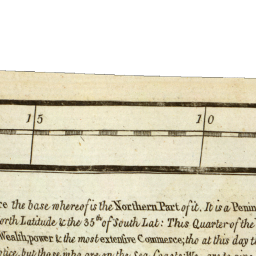 15 10
re the base whereof is the Northern Part of it. It is a Penin
orth Latitude & the 35th of South Lat: This Quarter of the
Wealth, power & the most extensive Commerce; tho at this day t
otice, but those who are on the Sea Coasts